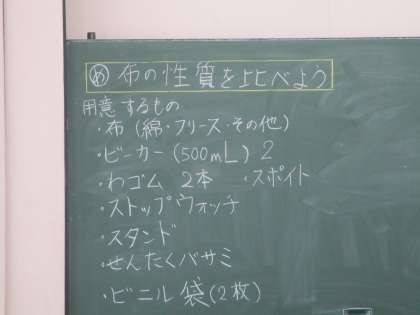 め 布の性質を比べよう
用意するもの
・布(綿・フリース・その他)
・ビーカー(500mL) 2
・わゴム 2本 ・スポイト
・ストップウォッチ
・スタンド
・せんたくバサミ
・ビニル袋(2枚)